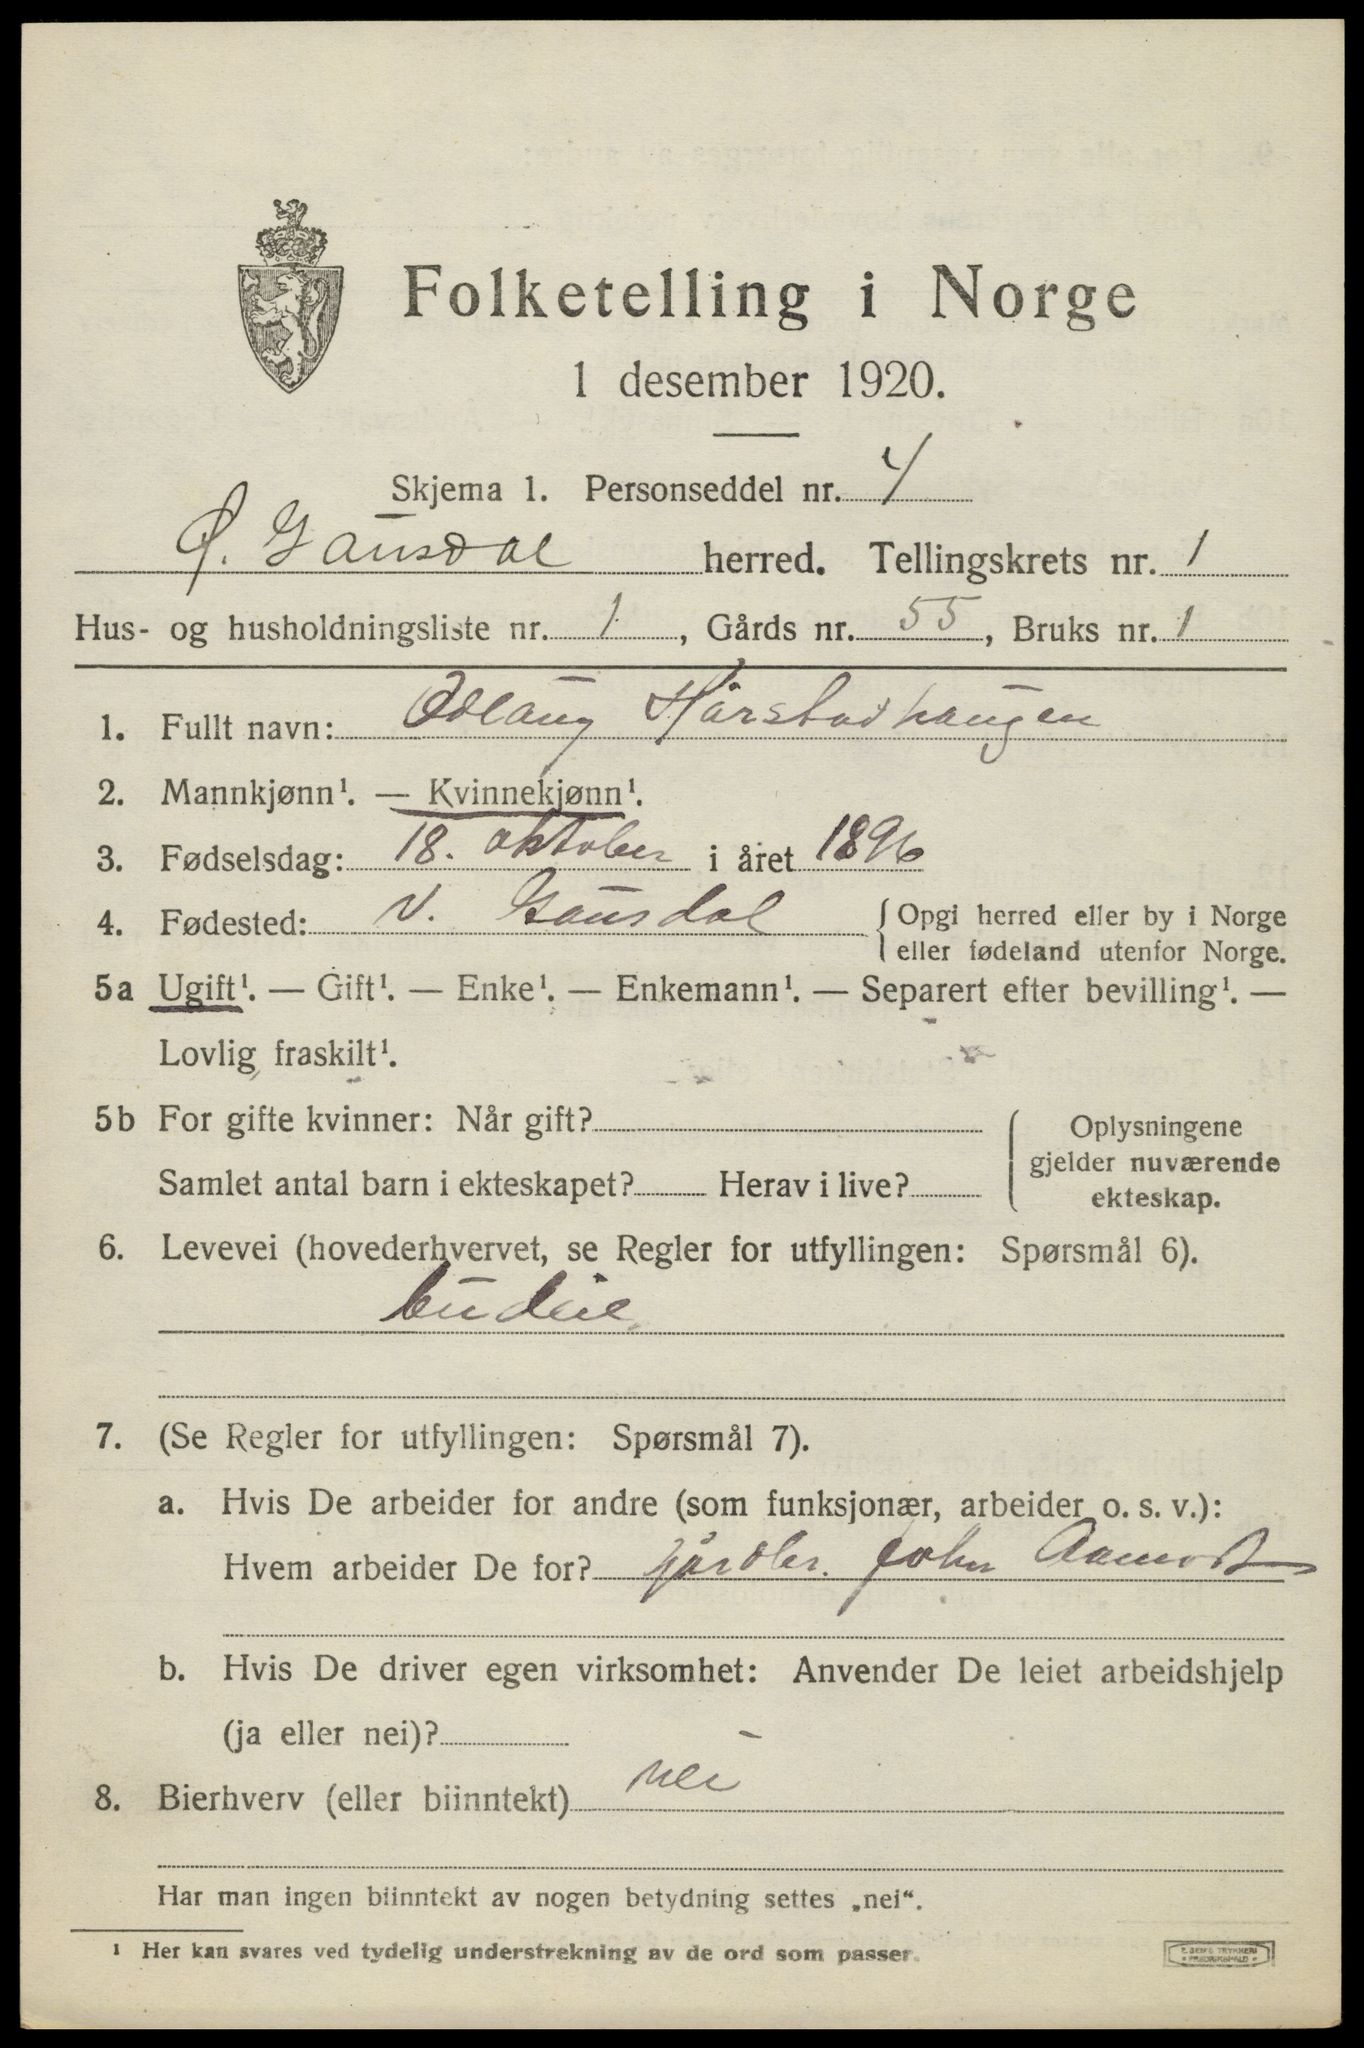 Folketelling i Norge
1 desember 1920.
Skjema 1. Personseddel nr. 4
Ø. Gausdal herred. Tellingskrets nr. 1
Hus- og husholdningsliste nr. 1, Gårds nr. 55, Bruks nr. 1
1. Fullt navn: Odlaug Hårstadhaugen
2. Mannkjønn¹. — Kvinnekjønn¹.
3. Fødselsdag: 18. oktober i året 1896
4. Fødested: V. Gausdal { Opgi herred eller by i Norge
eller fødeland utenfor Norge.
5a Ugift¹. — Gift¹. — Enke¹. — Enkemann¹. — Separert efter bevilling¹. —
Lovlig fraskilt¹.
5b For gifte kvinner: Når gift?
Samlet antal barn i ekteskapet? Herav i live?
Oplysningene
gjelder nuværende
ekteskap.
6. Levevei (hovederhvervet, se Regler for utfyllingen: Spørsmål 6).
budeie
7. (Se Regler for utfyllingen: Spørsmål 7).
a. Hvis De arbeider for andre (som funksjonær, arbeider o. s. v.):
Hvem arbeider De for? gårdbr. John Aamodt
b. Hvis De driver egen virksomhet: Anvender De leiet arbeidshjelp
(ja eller nei)?
8. Bierhverv (eller biinntekt) nei
Har man ingen biinntekt av nogen betydning settes „nei“.
¹ Her kan svares ved tydelig understrekning av de ord som passer.